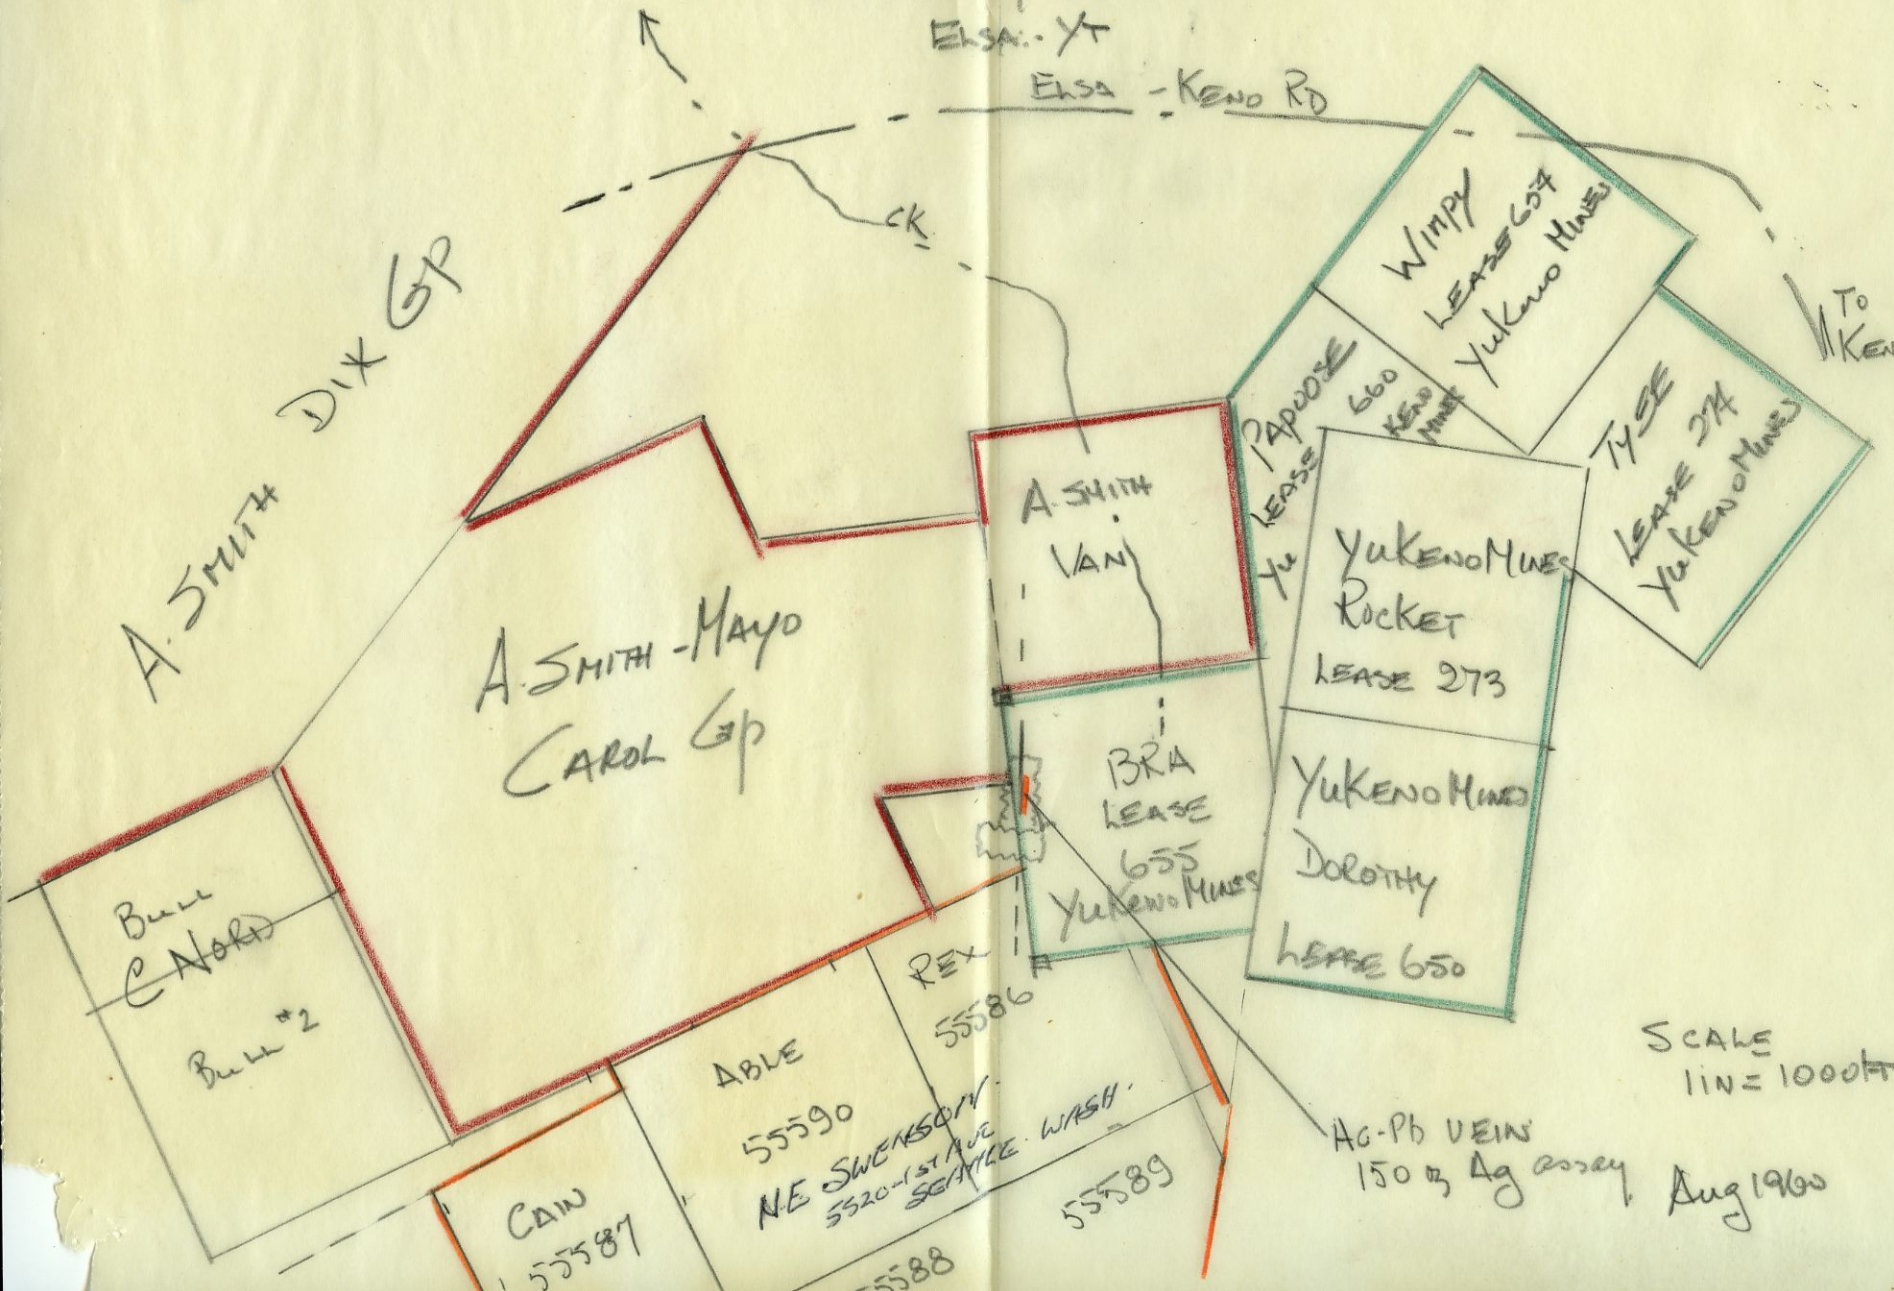 ELSA - YT
ELSA - KENO RD
CK.
TO
KEN
A. SMITH DIX GP
WIMPY
LEASE 654
YUKENO MINES
PAPOOSE
LEASE 660
YU KENO MINES
TYSE
LEASE 274
YUKENO MINES
A. SMITH
VAN
YUKENO MINES
ROCKET
LEASE 273
A. SMITH - MAYO
CAROL GP
BRA
LEASE
655
YUKENO MINES
YUKENO MINES
DOROTHY
LEASE 650
BULL
C NORD
BULL #2
REX
55586
ABLE
55590
N.E SWENSON.
5520-1ST AVE
SEATTLE. WASH.
CAIN
55587
55589
55588
SCALE
1 IN = 1000 FT
AG-Pb VEIN
150 oz Ag assay
Aug 1960